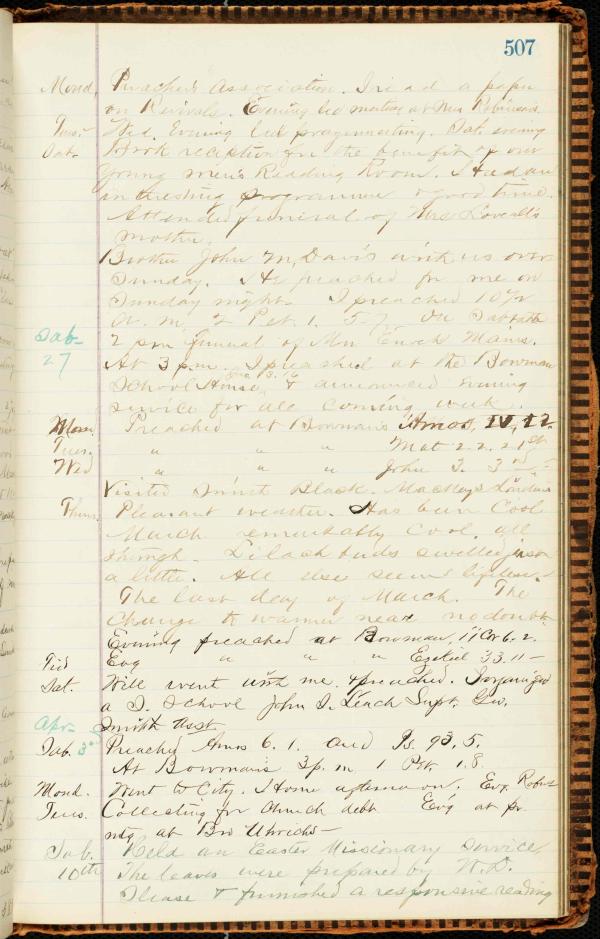 507
Mond. Preachers Association. I read a paper
on Revivals. Evening led meeting at Mrs Robinsons
Tues. Wed. Evening led prayermeeting. Sat. evening
Sat. took reception for the benefit of our
young men's Reading Room. Had an
interesting programme & good time.
Attended funeral of Mrs Loveall's
mother.
Brother John M. Davis with us over
Sunday. He preached for me on
Sunday night. I preached 10 1/2
Sab. a. m. 2 Pet. 1. 5-7. On Sabbath
27 2 p m funeral of Mrs Enoch Mains.
At 3 p.m. I preached at the Bowman
School House, & announced evening
service for all coming week.
Mon. Preached at Bowman's Amos, IV, 12.
Tues. " " " Mat 22. 21st
Wed " " " John 3. 3rd
Visited Black. Mackeys
Thurs. Pleasant weather. Has been Cool
March remarkably cool, all
through. Lilack buds swelled just
a little. All else seems lifeless.
The last day of March. The
Change to warmer near no doubt
Evening preached at Bowman, II Cor 6. 2.
Fri Evg " " " Ezekiel 33. 11 —
Sat. Will went with me & preached. I organized
a S. School John S. Leach Supt. Geo.
Apr. Smith Asst
Sab. 3rd Preachd Amos 6. 1. and Ps. 93. 5.
At Bowman's 3 p. m. 1 Pet. 1. 8.
Mond. Went to City. Home afternoon. Evg.
Tues. Collecting for Church debt Evg at pr.
mtg at Bro Uhrichs —
Sab. Held an Easter Missionary Service,
10th The leaves were prepared by W. D.
& furnished a responsive reading